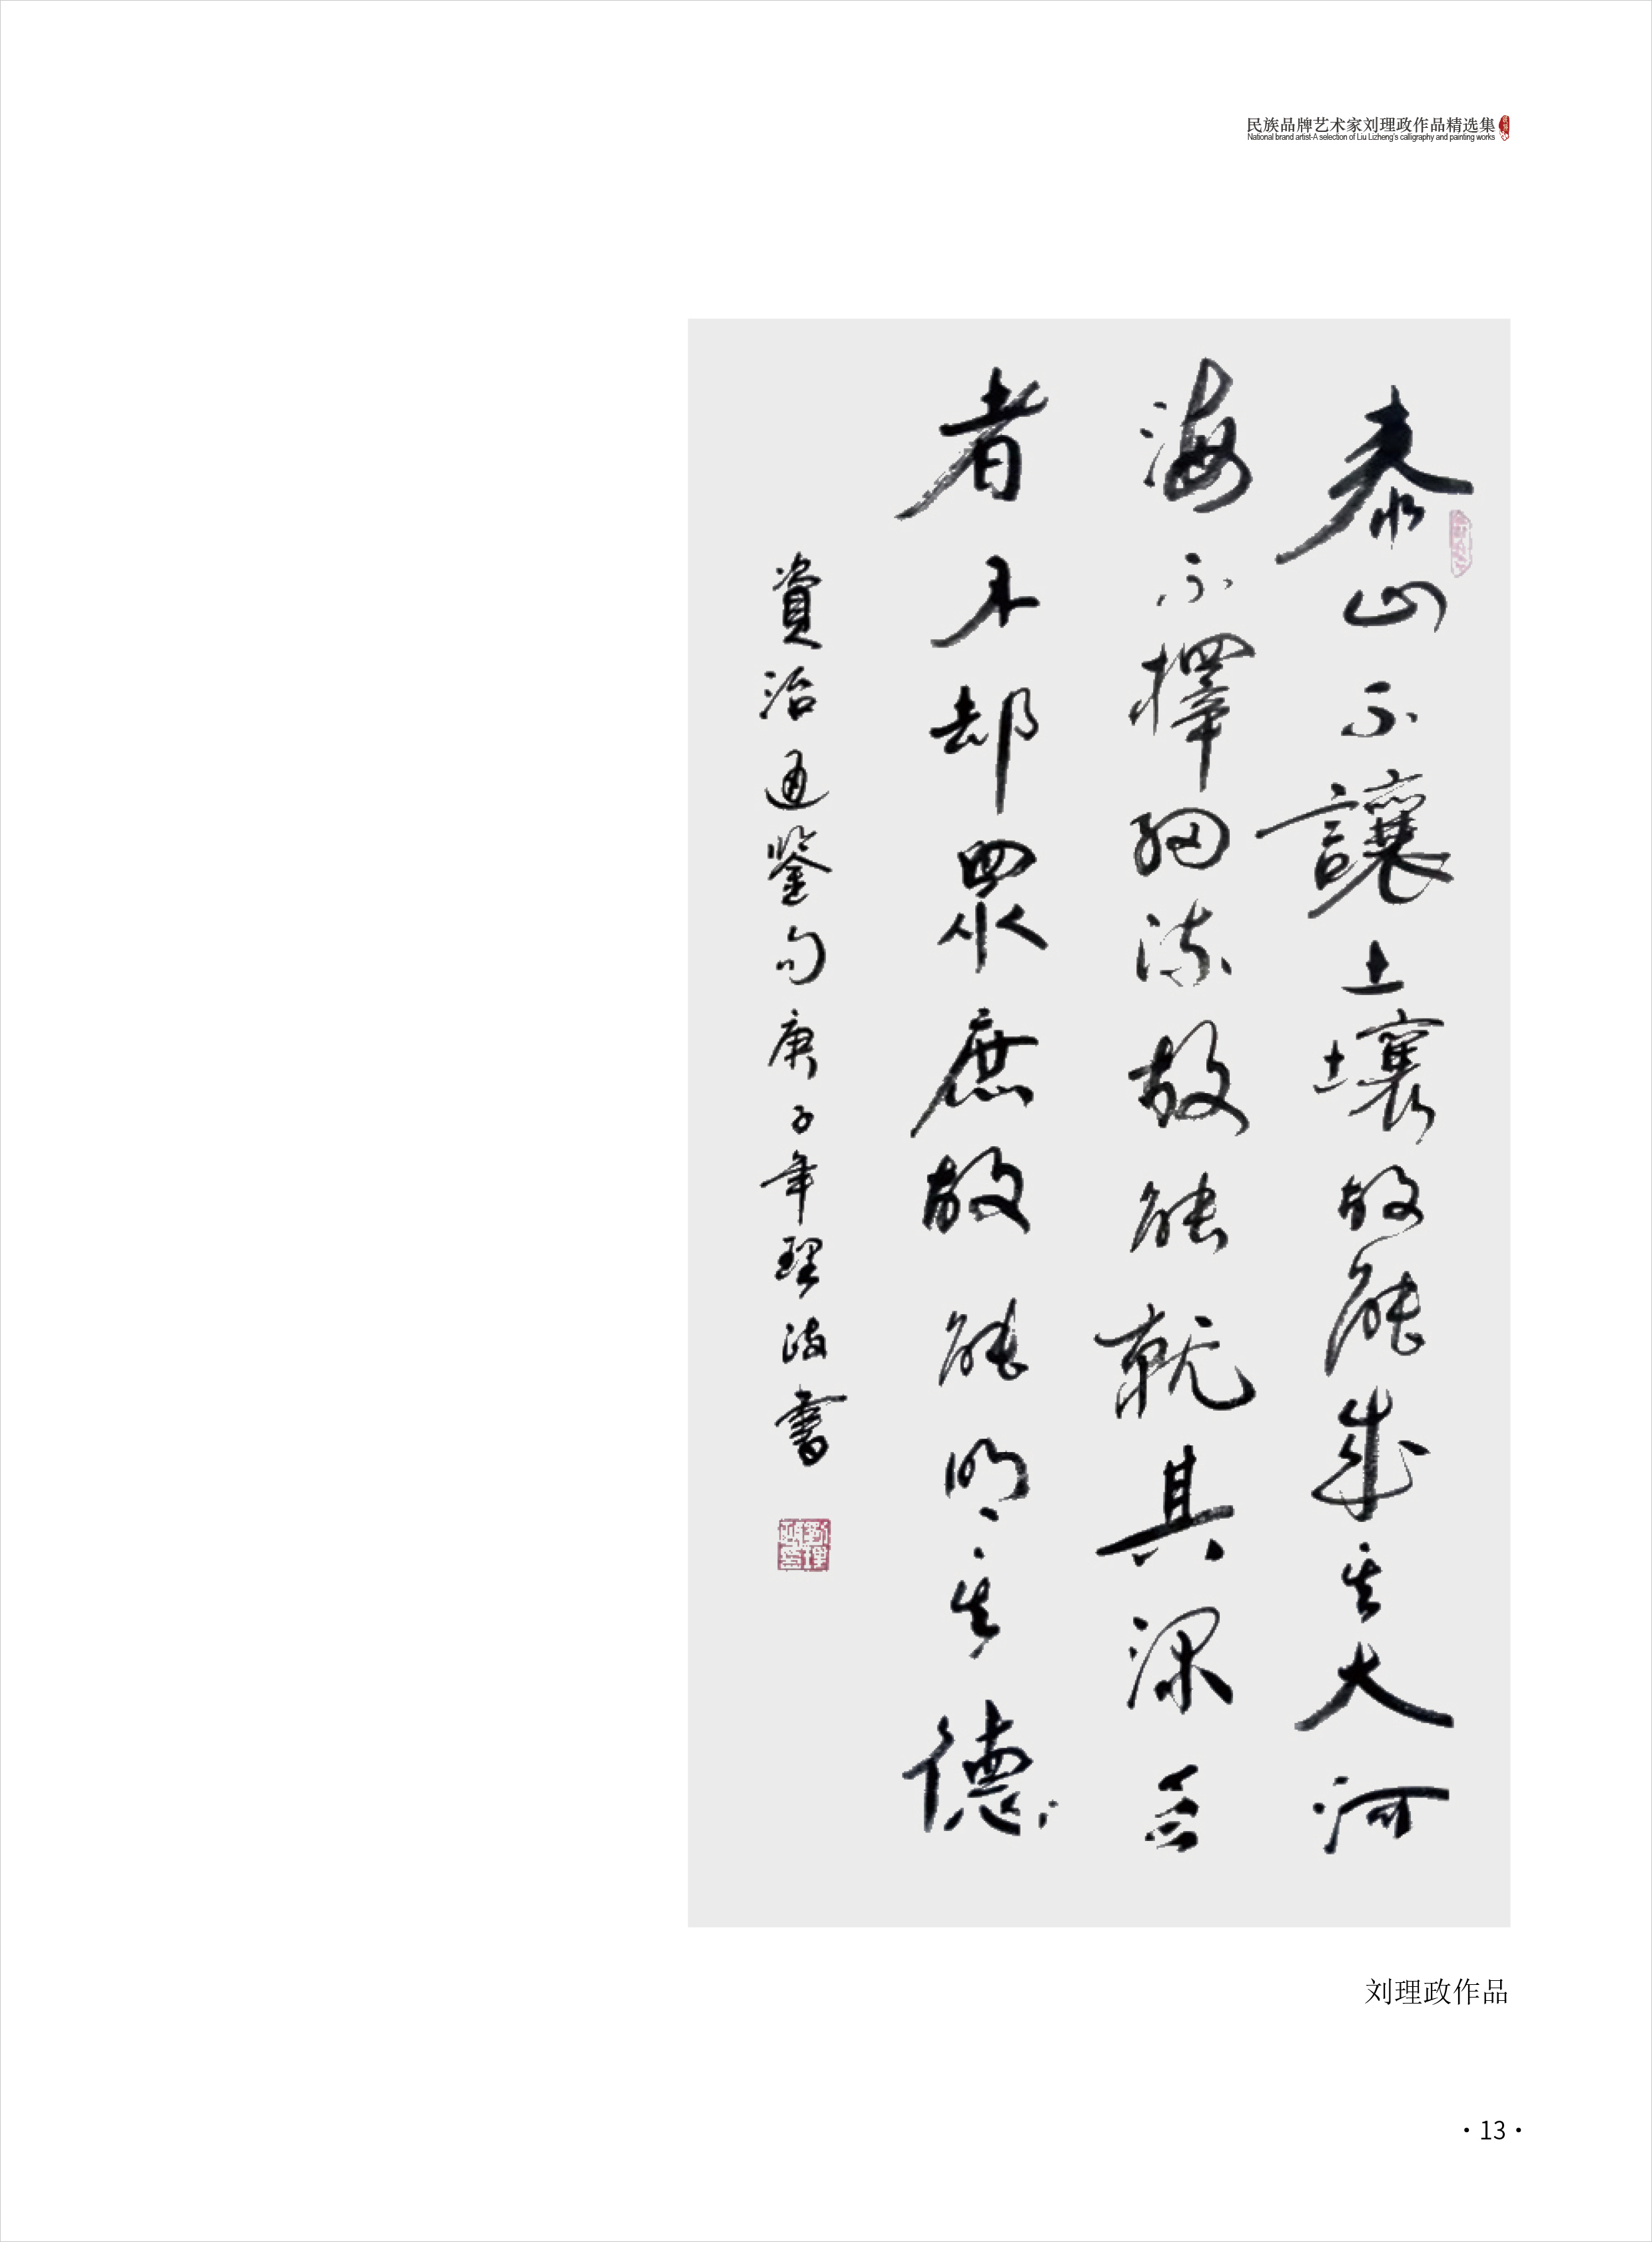 民族品牌艺术家刘理政作品精选集
National brand artist-A selection of Liu Lizheng's calligraphy and painting works
泰山不讓土壤故能成其大河
海不擇細流故能就其深王
者不却眾庶故能明其德
資治通鑒句庚子年理政書
刘理政作品
·13·